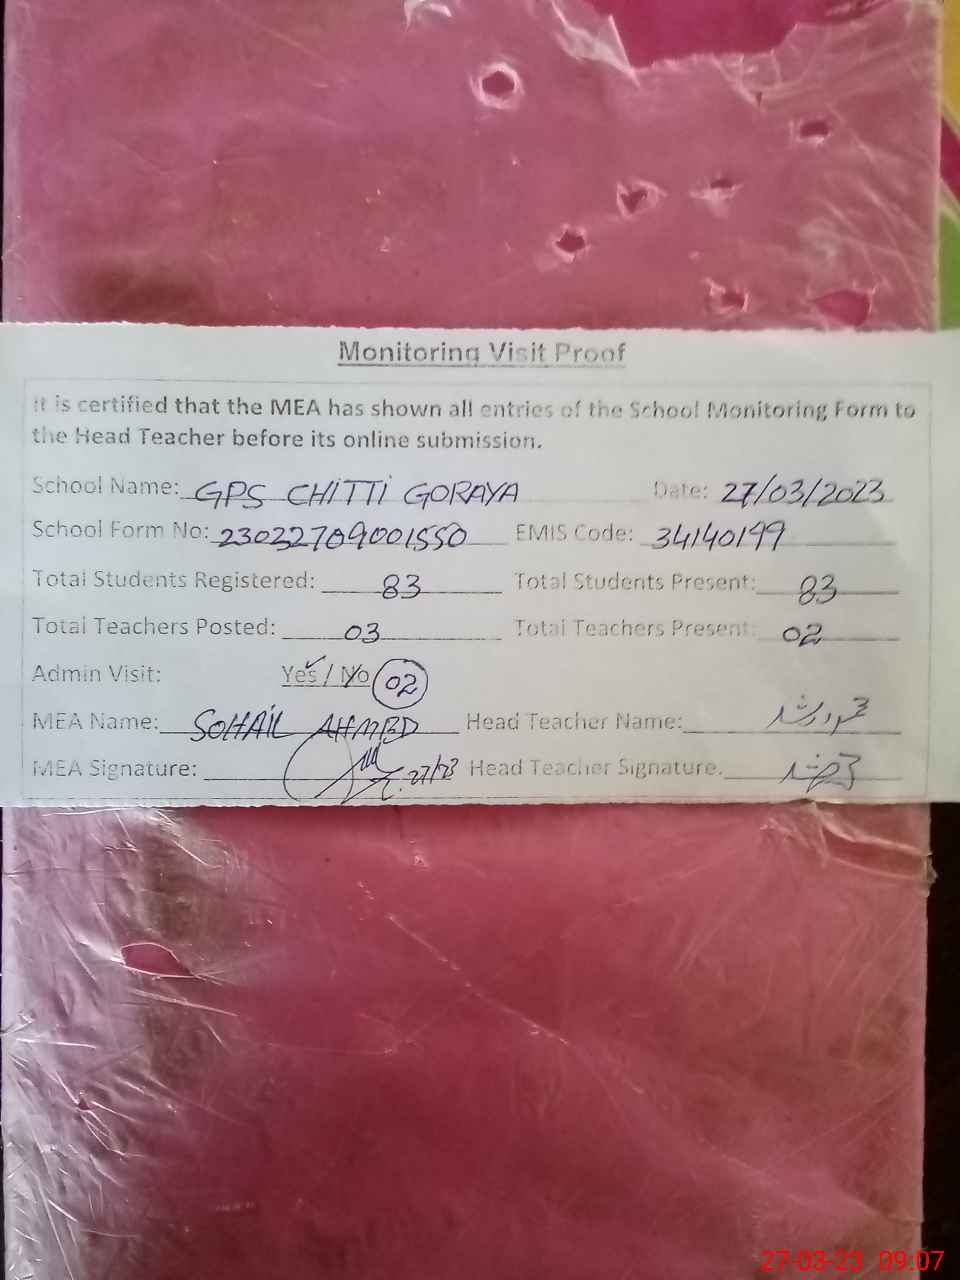 Monitoring Visit Proof
It is certified that the MEA has shown all entries of the School Monitoring Form to
the Head Teacher before its online submission.
School Name: GPS CHITTI GORAYA Date: 27/03/2023
School Form No: 23032709001550 EMIS Code: 34140199
Total Students Registered: 83 Total Students Present: 83
Total Teachers Posted: 03 Total Teachers Present: 02
Admin Visit: Yes / No 02
MEA Name: SOHAIL AHMED Head Teacher Name:
MEA Signature: 27/23 Head Teacher Signature.
27-03-23 09:07